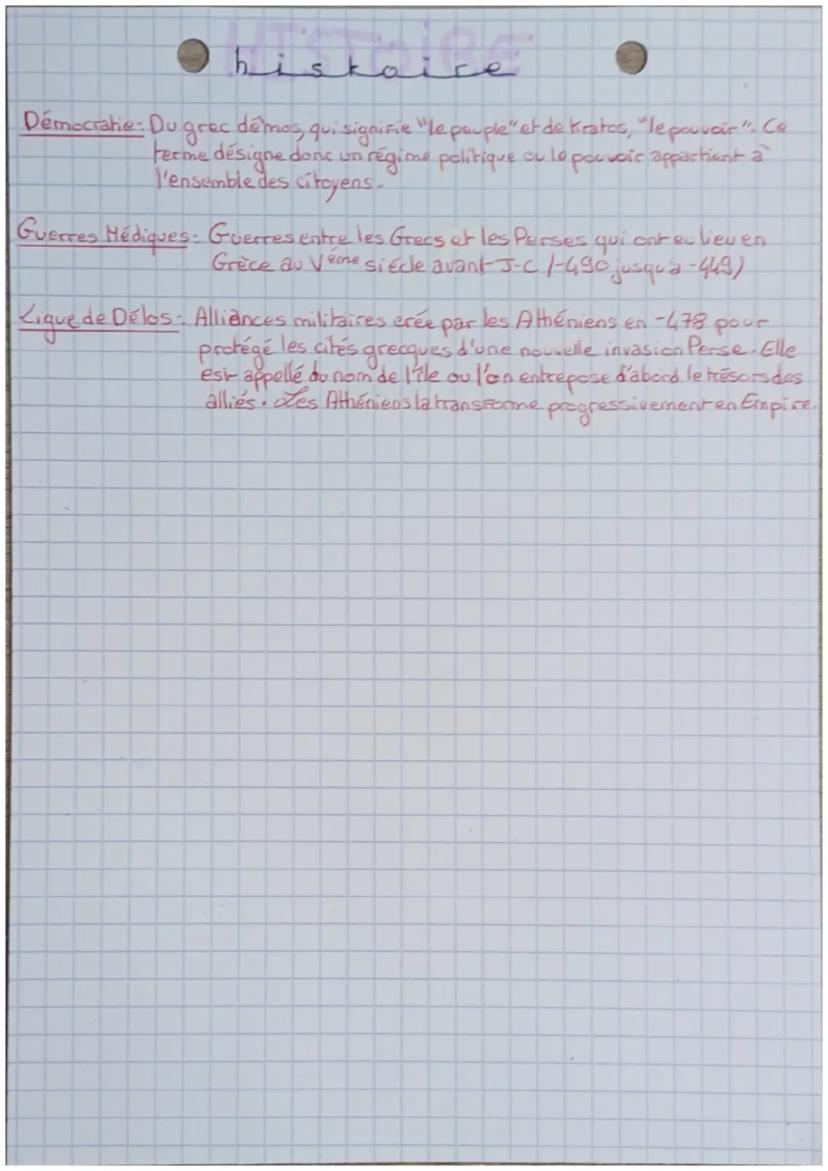 HISTOIRE
histoire
Démocratie: Du grec dêmos, qui signifie "le peuple" et de Kratos, "le pouvoir". Ce
terme désigne donc un régime politique ou le pouvoir appartient à
l'ensemble des citoyens.
Guerres Médiques: Guerres entre les Grecs et les Perses qui ont eu lieu en
Grèce au Vème siécle avant J-C (-490 jusqu'a -449)
Ligue de Délos: Alliances militaires crée par les Athéniens en -478 pour
protégé les cités grecques d'une nouvelle invasion Perse. Elle
est appellé du nom de l'île ou l'on entrepose d'abord le trésors des
alliés. Les Athéniens la transforme progressivement en Empire.